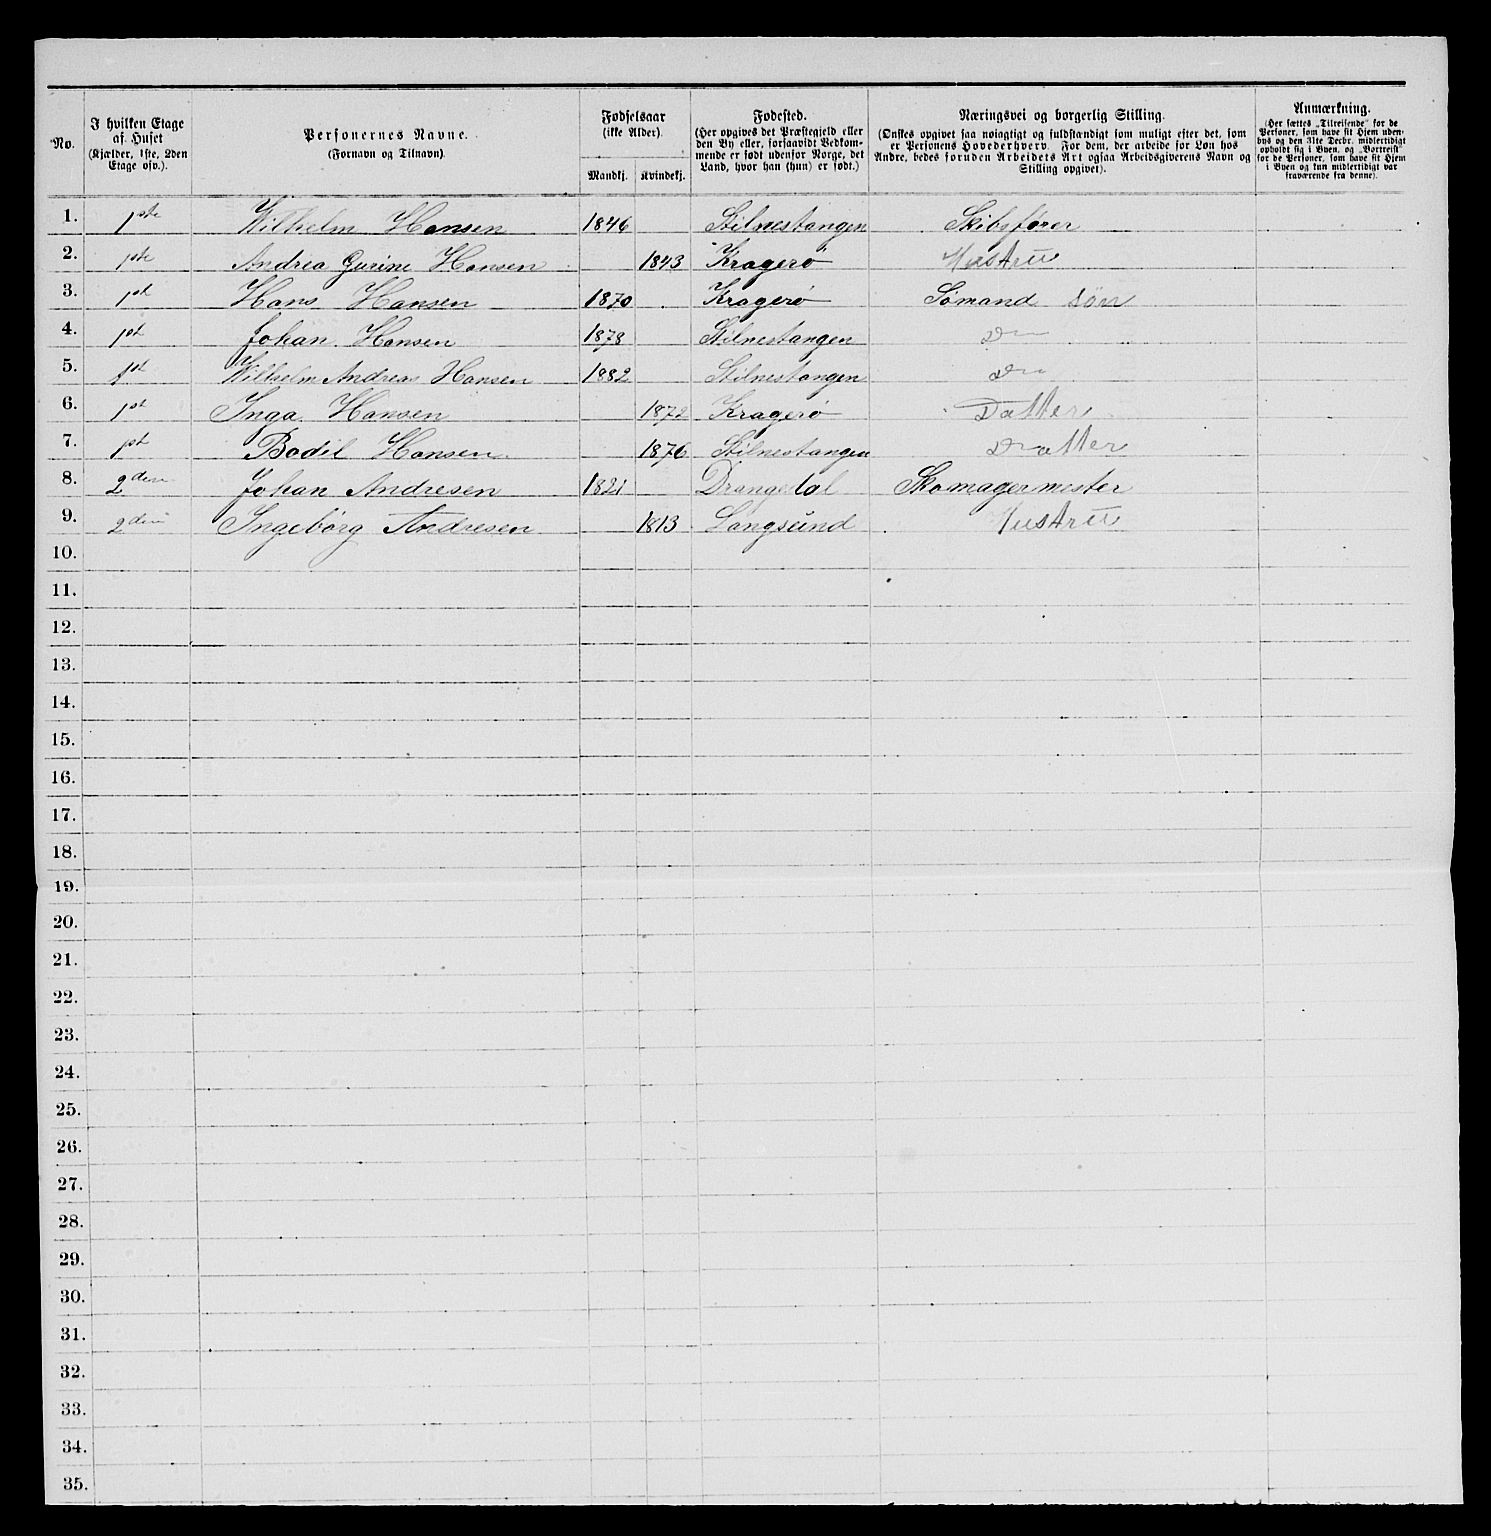 No.
I hvilken Etage af Huset (Kjælder, 1ste, 2den Etage osv.).
Personernes Navne. (Fornavn og Tilnavn).
Fødselsaar (ikke Alder).
Mandkj. Kvindekj.
Fødested. (Her opgives det Præstegjeld eller den By eller, forsaavidt Vedkommende er født udenfor Norge, det Land, hvor han (hun) er født.)
Næringsvei og borgerlig Stilling. (Ønskes opgivet saa nøiagtigt og fuldstændigt som muligt efter det, som er Personens Hovederhverv. For dem, der arbeide for Løn hos Andre, bedes foruden Arbeidets Art ogsaa Arbeidsgiverens Navn og Stilling opgivet).
Anmærkning. (Her sættes „Tilreisende“ for de Personer, som have sit Hjem udenbys og den 31te Decbr. midlertidigt opholdt sig i Byen, og „Bortreist“ for de Personer, som have sit Hjem i Byen og kun midlertidigt var fraværende fra denne).
1. 1ste Wilhelm Hansen 1846 Stilnestangen Skibsfører
2. 1ste Andrea Gurine Hansen 1843 Kragerø Hustru
3. 1st Hans Hansen 1870 Kragerø Sømand Søn
4. 1st Johan Hansen 1878 Stilnestangen Do
5. 1st Wilhelm Andreas Hansen 1882 Stilnestangen Do
6. 1st Inga Hansen 1872 Kragerø Datter
7. 1st Bodil Hansen 1876 Stilnestangen Datter
8. 2den Johan Andresen 1821 Drangedal Skomagermester
9. 2den Ingeborg Andresen 1813 Langsund Hustru
10.
11.
12.
13.
14.
15.
16.
17.
18.
19.
20.
21.
22.
23.
24.
25.
26.
27.
28.
29.
30.
31.
32.
33.
34.
35.